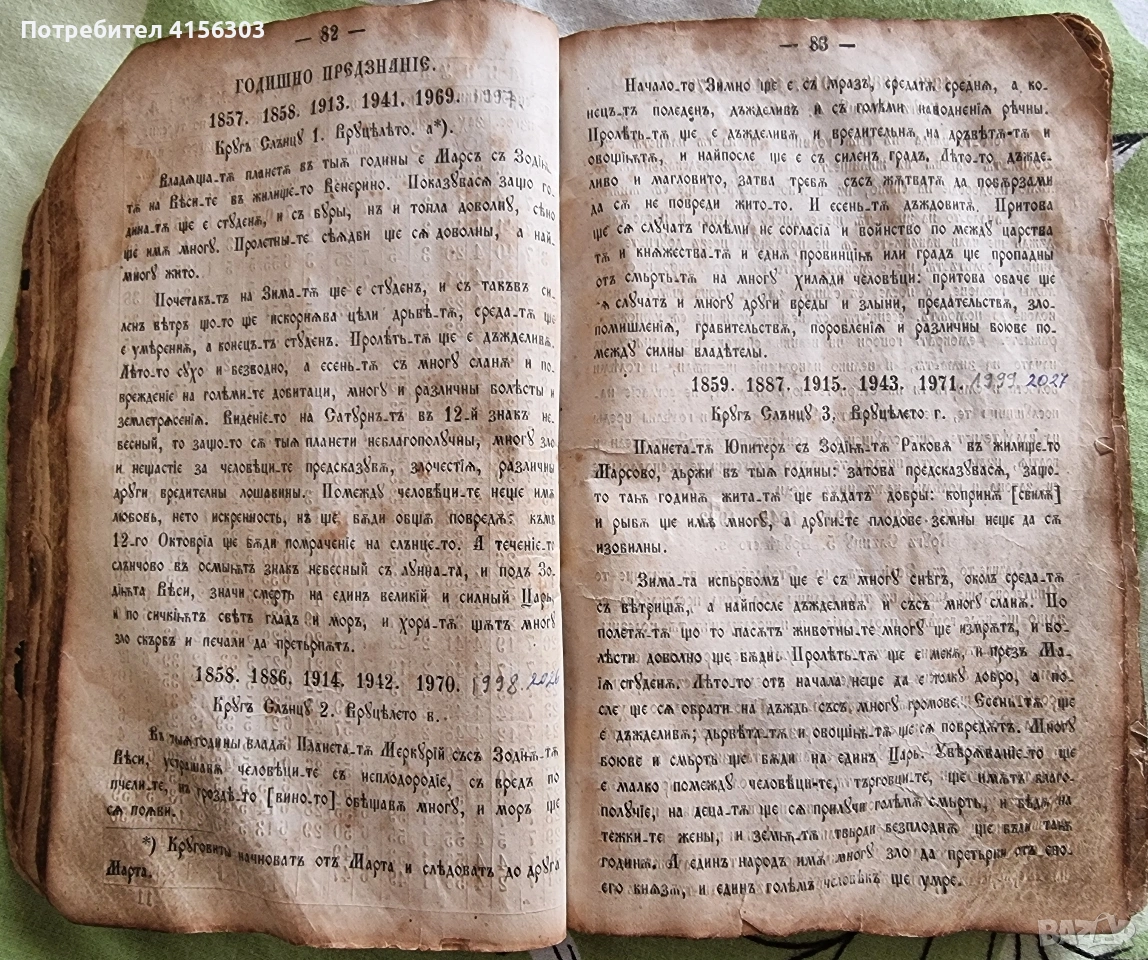 Потребител 4156303
— 82 —
ГОДИШНО ПРЕДЗНАНІЕ.
1857. 1858. 1913. 1941. 1969. 1997
Кругъ Слънцу 1. Вруцѣлѣто. а*).
Владѧща-тѫ планетѫ въ тыѧ години є Марсъ съ Зодіѫ-
тѫ на Вѣси-те въ жилище-то Венерино. Показувасѧ защо го-
дина-тѫ ще є студенѫ, и съ буры, нъ и топла доволну, сѣно
ще имѫ многу. Пролетны-те сѣѧдви ще сѫ доволны, а най-
многу жито.
Почетакъ-тъ на Зима-тѫ ще є студенъ, и съ такъвъ си-
ленъ вѣтръ що-то ще искорнѭва цѣли дрьвѣ-тѫ, среда-тѫ ще
є умѣренѫ, а конецъ-тъ студенъ. Пролѣть-тѫ ще є дъжделивѫ.
Лѣто-то сухо и безводно, а есень-тѫ съ многу сланѫ и по-
врежденіе на големи-те добитаци, многу и различны болѣсты и
землетрѫсенія. Виденіе-то на Сатурнъ-тъ въ 12-й знакъ не-
весный, то защо-то сѫ тыѧ планети неблагополучны, многу зло
и нещастіе за человѣци-те предсказувѫ, злочестія, различны
други вредителны лошавины. Помежду человѣци-те неще имѫ
любовь, нето искренность, нъ ще бѫди общіѫ повредѫ: къмъ
12-го Октовріа ще бѫди помраченіе на слънце-то. А теченіе-то
слънчово въ осмыѫтъ знакъ небесный съ лунна-та, и подъ Зо-
діѫта Вѣси, значи смерть на единъ великій и силный Царь,
и по сичкіѫтъ свѣтъ гладъ и моръ, и хора-тѫ щѫтъ многу
зло скърбъ и печали да претърпѫтъ.
1858. 1886. 1914. 1942. 1970. 1998. 2026
Кругъ Слънцу 2. Вруцѣлето в.
Въ тыѧ години владѫ Планета-тѫ Меркурій съсъ Зодіѫ-тѫ
Вѣси, устрашавѫ человѣци-те съ исплодородіе, съ вредъ по
пчели-те, нъ гроздѣ-то [вино-то] обѣщавѫ многу, и моръ ще
сѧ поѧви.
*) Круговиты начноватъ отъ Марта и слѣдоватъ до друга
Марта.
— 83 —
Начало-то Зимно ще є съ мразъ, средатѫ среднѫ, а ко-
нецъ-тъ поледенъ, дъжделивъ и съ големи наводненія рѣчны.
Пролѣть-тѫ ще є дъжделивѫ и вредителнѫ на дръвѣтѫ-тѫ и
овощіѫтѫ, и найпосле ще є съ силенъ градъ. Лѣто-то дъжде-
ливо и магловито, затва требѫ съсъ жѫтватѫ да побързами
да сѧ не повреди жито-то. И есень-тѫ дъждовитѫ. Притова
ще сѧ случатъ големи не согласіа и войнство по между царства
тѫ и княжества-тѫ и еднѫ провинціѫ или градъ ще пропадны
отъ смърть-тѫ на многу хиляди человѣци: притова обаче ще
сѧ случатъ и многу други вреды и злыни, предателствѫ, зло-
помишленія, грабителствѫ, поробленія и различны боюве по-
между силны владѣтелы.
1859. 1887. 1915. 1943. 1971. 1999. 2027
Кругъ Слънцу 3. Вруцѣлето г.
Планета-тѫ Юпитеръ съ Зодіѫ-тѫ Раковѫ въ жилище-то
Марсово, държи въ тыѧ години: затова предсказувасѧ, защо-
то таѭ годинѫ жита-тѫ ще бѫдатъ добры: копринѫ [свилѫ]
и рыбѫ ще имѫ многу, а други-те плодове земны неще да сѫ
изобилны.
Зима-та испървомъ ще є съ многу снѣгъ, околъ среда-тѫ
съ вѣтрищѫ, а найпосле дъжделивѫ и съсъ многу сланѫ. По
полетѫ-тѫ що то пасѫтъ животны-те многу ще измрѫтъ, и бо-
лѣсти доволно ще бѫди. Пролѣть-тѫ ще є мекѫ, и презъ Ма-
ія студенѫ. Лѣто-то отъ начала неще да є толку добро, а по-
сле ще сѧ обрати на дъждь съсъ многу громове. Есень-тѫ ще
є дъжделивѫ; дървѣта-тѫ и овощіѫ-тѫ ще сѧ повредѫтъ. Многу
боюве и смърть ще бѫди на единъ Царь. Увѣрѫваніе-то ще
є малко помежду человѣци-те, търговци-те, ще имѫтъ благо-
получіе, на деца-тѫ ще сѧ прилучи големѫ смърть, и бѣдѫ на
тежки-те жены, и земѭ-тѫ твърди безплоднѫ ще бѫди таѭ
годинѫ. А единъ народъ имѫ многу зло да претърпи отъ сво-
его кнѧзѫ, и единъ големъ человѣкъ ще умре.
BAZAR